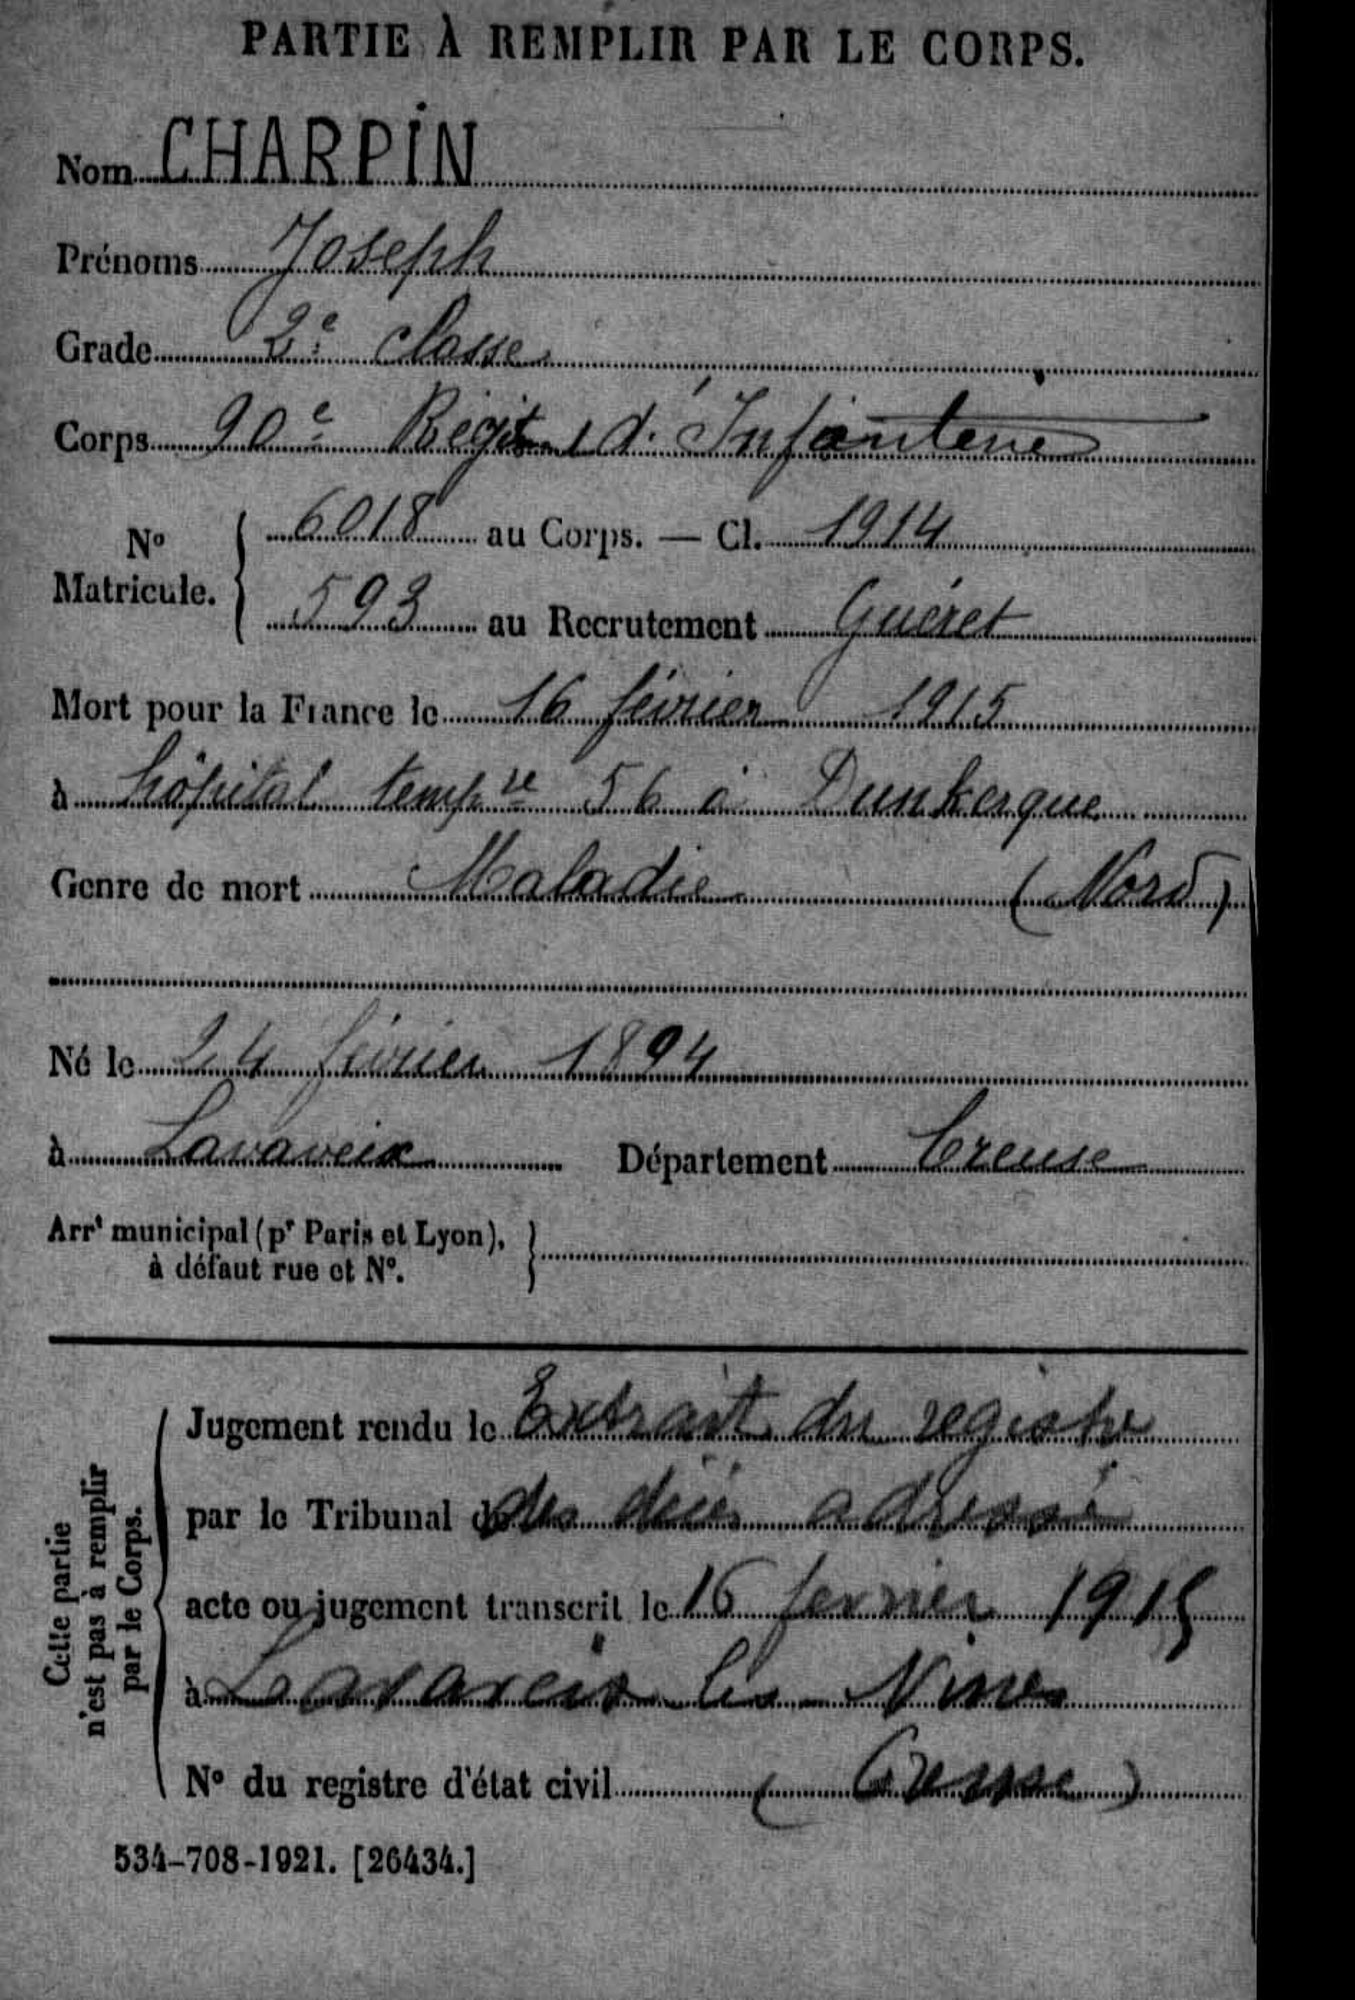 PARTIE À REMPLIR PAR LE CORPS.
Nom CHARPIN
Prénoms Joseph
Grade 2e classe
Corps 90e Régit d'Infanterie
No Matricule. 6018 au Corps. — Cl. 1914
593 au Recrutement Guéret
Mort pour la France le 16 février 1915
à hôpital tempre 56 à Dunkerque
Genre de mort Maladie (Nord)
Né le 24 février 1894
à Lavaveix Département Creuse
Arrt municipal (pr Paris et Lyon),
à défaut rue et No.
Cette partie
n'est pas à remplir
par le Corps.
Jugement rendu le Extrait du registre
par le Tribunal de des décès adressé
acte ou jugement transcrit le 16 fevrier 1915
à Lavaveix les Mines
No du registre d'état civil (Creuse)
534-708-1921. [26434.]